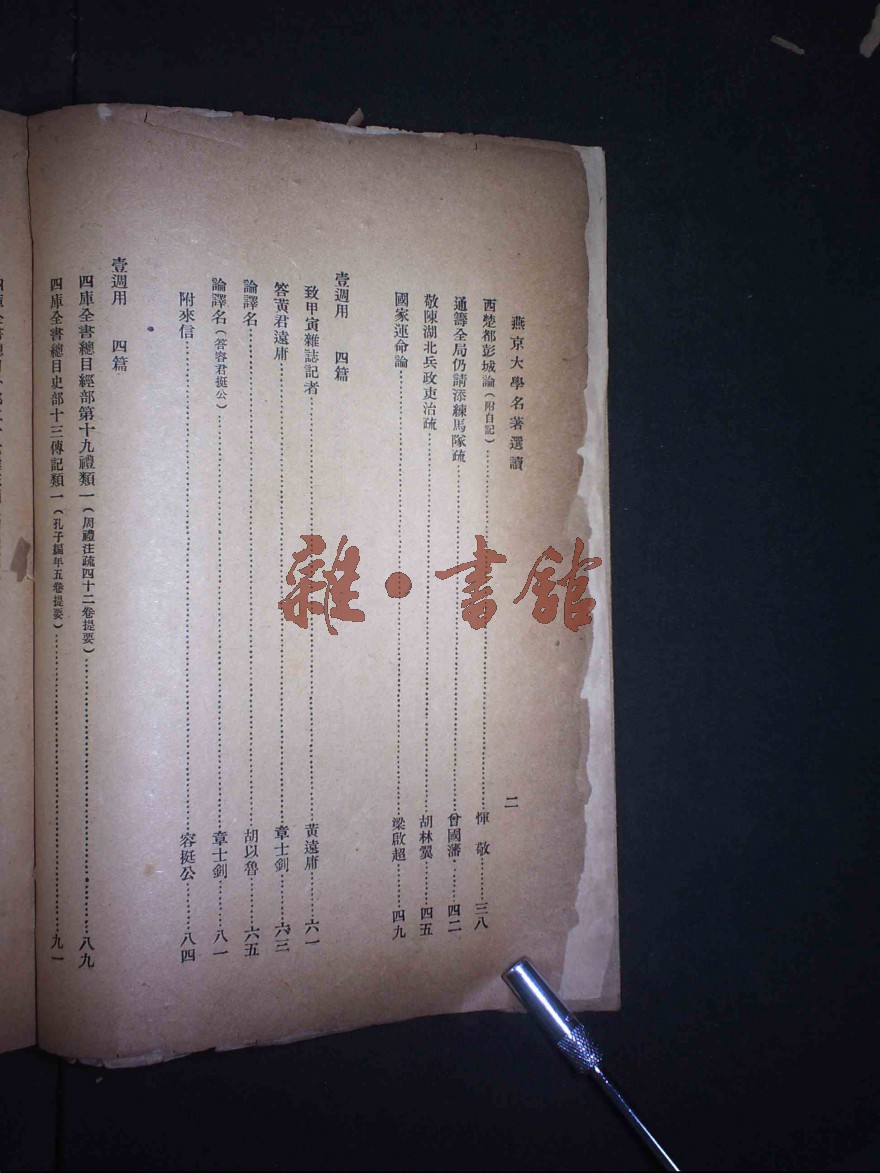 燕京大學名著選讀 二
西楚都彭城論（附自記）……惲敬……三八
通籌全局仍請添練馬隊疏……曾國藩……四二
敬陳湖北兵政吏治疏……胡林翼……四五
國家運命論……梁啟超……四九
壹週用 四篇
致甲寅雜誌記者……黃遠庸……六一
答黃君遠庸……章士釗……六三
論譯名……胡以魯……六五
論譯名（答容君挺公）……章士釗……八一
附來信……容挺公……八四
壹週用 四篇
四庫全書總目經部第十九禮類一（周禮注疏四十二卷提要）……八九
四庫全書總目史部十三傳記類一（孔子編年五卷提要）……九一
雜·書館